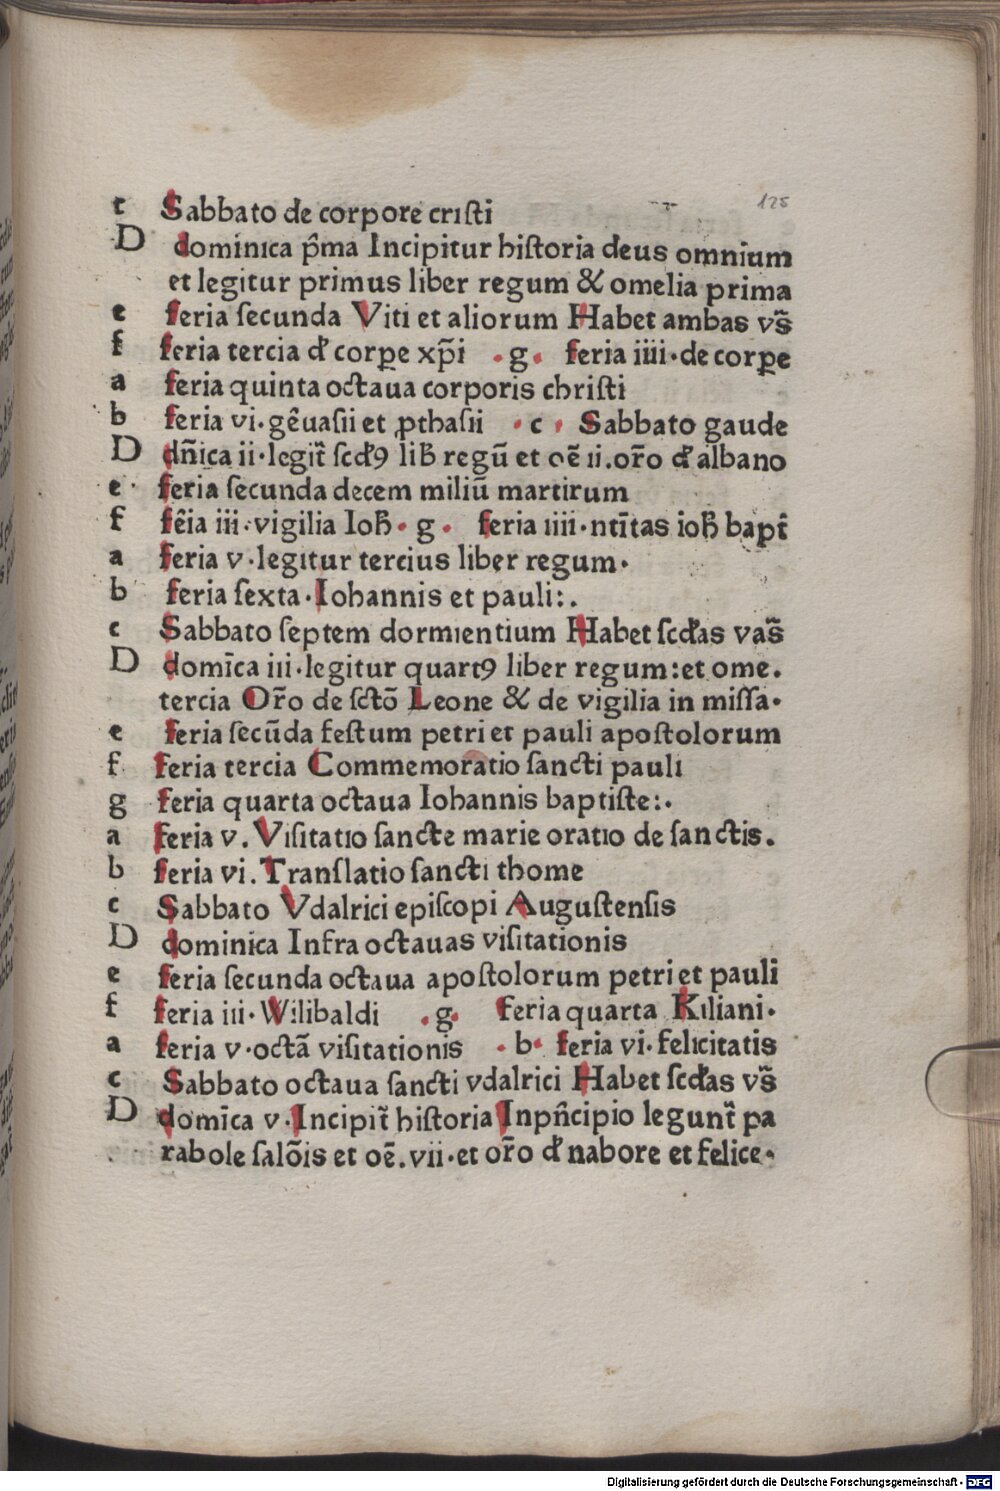 125
c Sabbato de corpore cristi
D dominica p̄ma Incipitur hiſtoria deus omnium
et legitur primus liber regum & omelia prima
e feria ſecunda Viti et aliorum Habet ambas vs̄
f feria tercia đ corꝑe xp̄i · g · feria iiii · de corꝑe
a feria quinta octaua corporis chriſti
b feria vi · gēuaſii et ꝓthaſii · c · Sabbato gaude
D dn̄ica ii · legit᷑ ſcđꝰ lib̄ regū et oē ii. or̄o đ albano
e feria ſecunda decem miliū martirum
f fēia iii · vigilia Ioh̄ · g · feria iiii · ntītas ioh̄ bapt̄
a feria v · legitur tercius liber regum ·
b feria ſexta · Iohannis et pauli : .
c Sabbato ſeptem dormientium Habet ſcđas vas̄
D domīca iii · legitur quartꝰ liber regum : et ome.
tercia Or̄o de ſctō Leone & de vigilia in miſſa ·
e feria ſecūda feſtum petri et pauli apoſtolorum
f feria tercia Commemoratio ſancti pauli
g feria quarta octaua Iohannis baptiſte : .
a feria v. Viſitatio ſancte marie oratio de ſanctis.
b feria vi. Tranſlatio ſancti thome
c Sabbato Vdalrici epiſcopi Auguſtenſis
D dominica Infra octauas viſitationis
e feria ſecunda octaua apoſtolorum petri et pauli
f feria iii · Wilibaldi · g · feria quarta Kiliani ·
a feria v · octā viſitationis · b · feria vi · felicitatis
c Sabbato octaua ſancti vdalrici Habet ſcđas vs̄
D domīca v · Incipit᷑ hiſtoria Inpn̄cipio legunt᷑ pa
rabole ſalōis et oē. vii · et or̄o đ nabore et felice ·
Digitalisierung gefördert durch die Deutsche Forschungsgemeinschaft - DFG